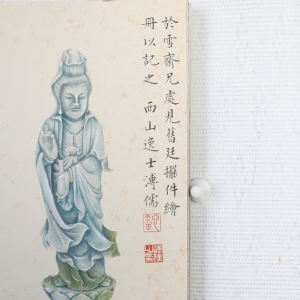 於雪齋兄處見舊廷擺件繪
冊以記之 西山逸士溥儒